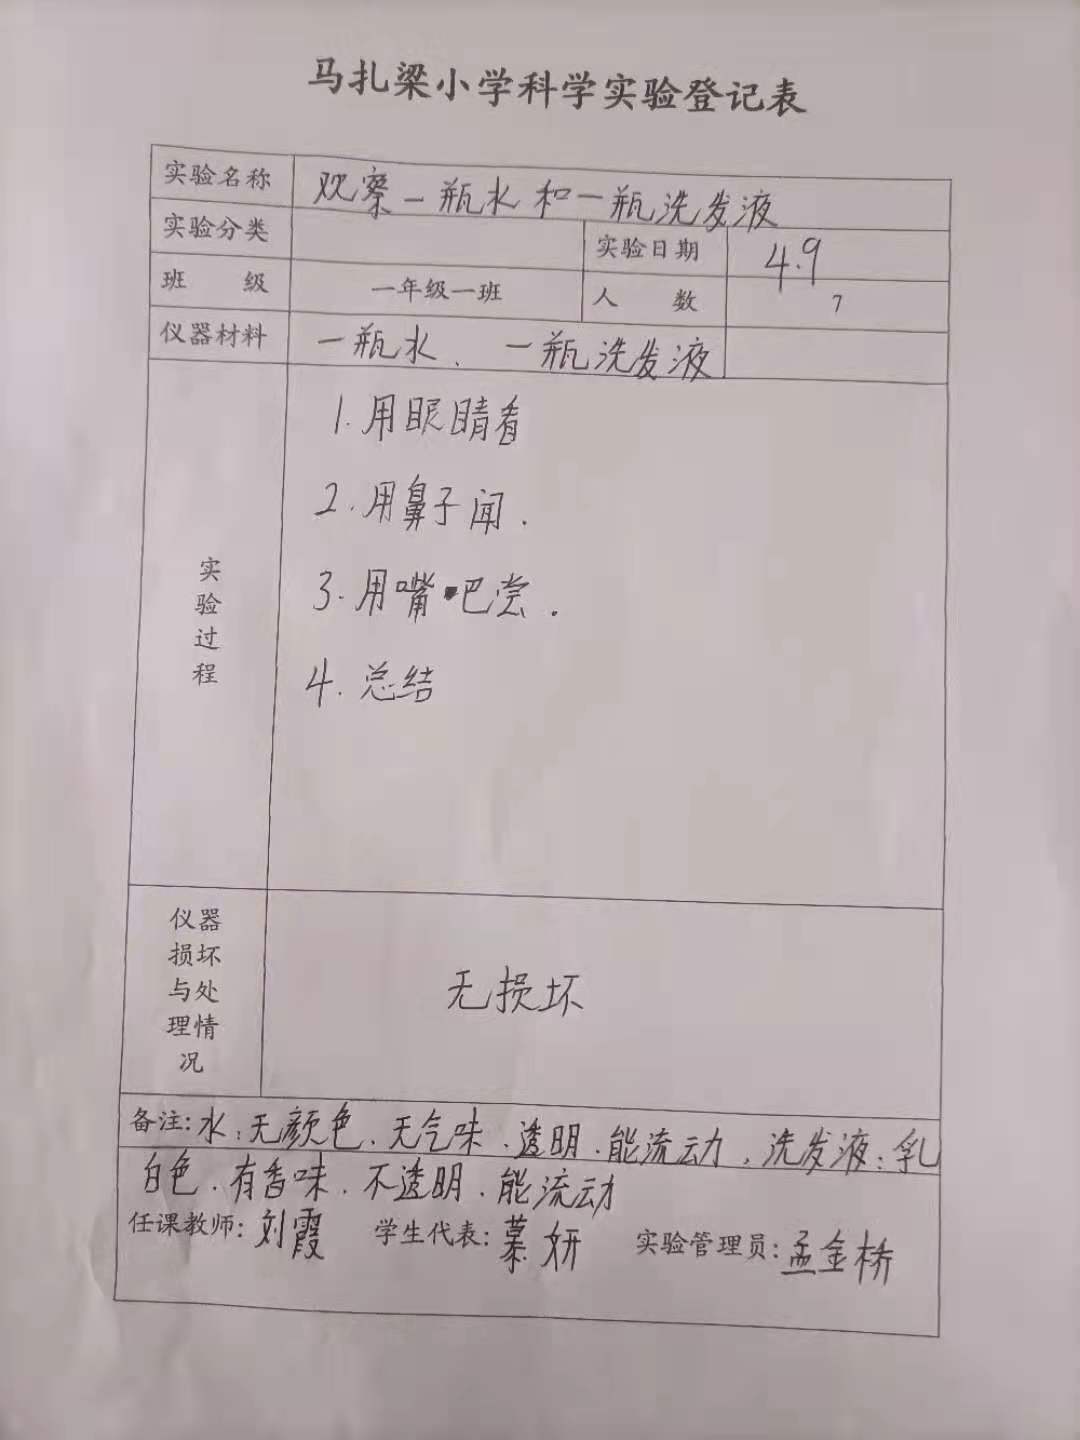 马扎梁小学科学实验登记表
实验名称 观察一瓶水和一瓶洗发液
实验分类 实验日期 4.9
班 级 一年级一班 人 数 7
仪器材料 一瓶水、一瓶洗发液
实验过程
1.用眼睛看
2.用鼻子闻.
3.用嘴吧尝.
4.总结
仪器损坏与处理情况 无损坏
备注:水:无颜色、无气味、透明、能流动,洗发液:乳
白色、有香味、不透明、能流动
任课教师:刘霞 学生代表:慕妍 实验管理员:孟金桥